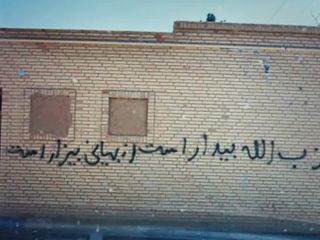 زب الله بیدار است از بهائی بیزار است